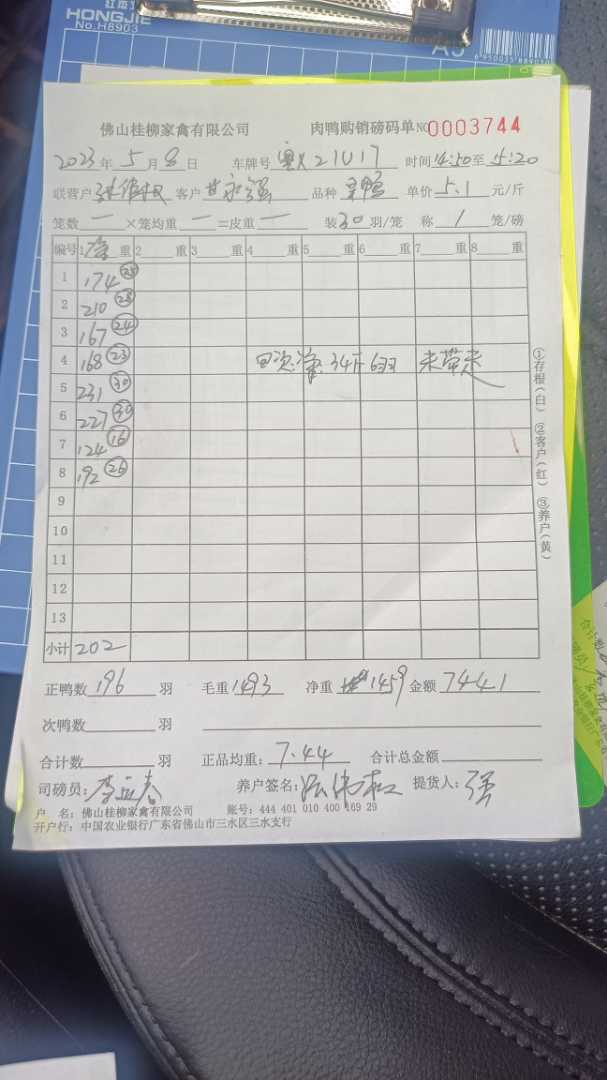 HONGJIE
No.H6903
A5
6950035889050
佛山桂柳家禽有限公司 肉鸭购销磅码单 NO 0003744
2023年5月8日 车牌号 粤X21U17 时间 14:50至15:20
联营户 客户 甘永强 品种 单价 5.1 元/斤
笼数 一 ×笼均重 一 =皮重 一 装30羽/笼 称 1 笼/磅
编号 1 净重 2 重 3 重 4 重 5 重 6 重 7 重 8 重
1 174 (25)
2 210 (28)
3 167 (24)
4 168 (23) 回次净重34斤6羽 未带走
5 231 (30)
6 227 (30)
7 124 (16)
8 192 (26)
9
10
11
12
13
小计 202
①存根(白) ②客户(红) ③养户(黄)
正鸭数 196 羽 毛重 1493 净重 1459 金额 7441
次鸭数 羽
合计数 羽 正品均重: 7.44 合计总金额
司磅员: 养户签名: 提货人: 强
户 名: 佛山桂柳家禽有限公司 账号: 444 401 010 400 169 29
开户行: 中国农业银行广东省佛山市三水区三水支行